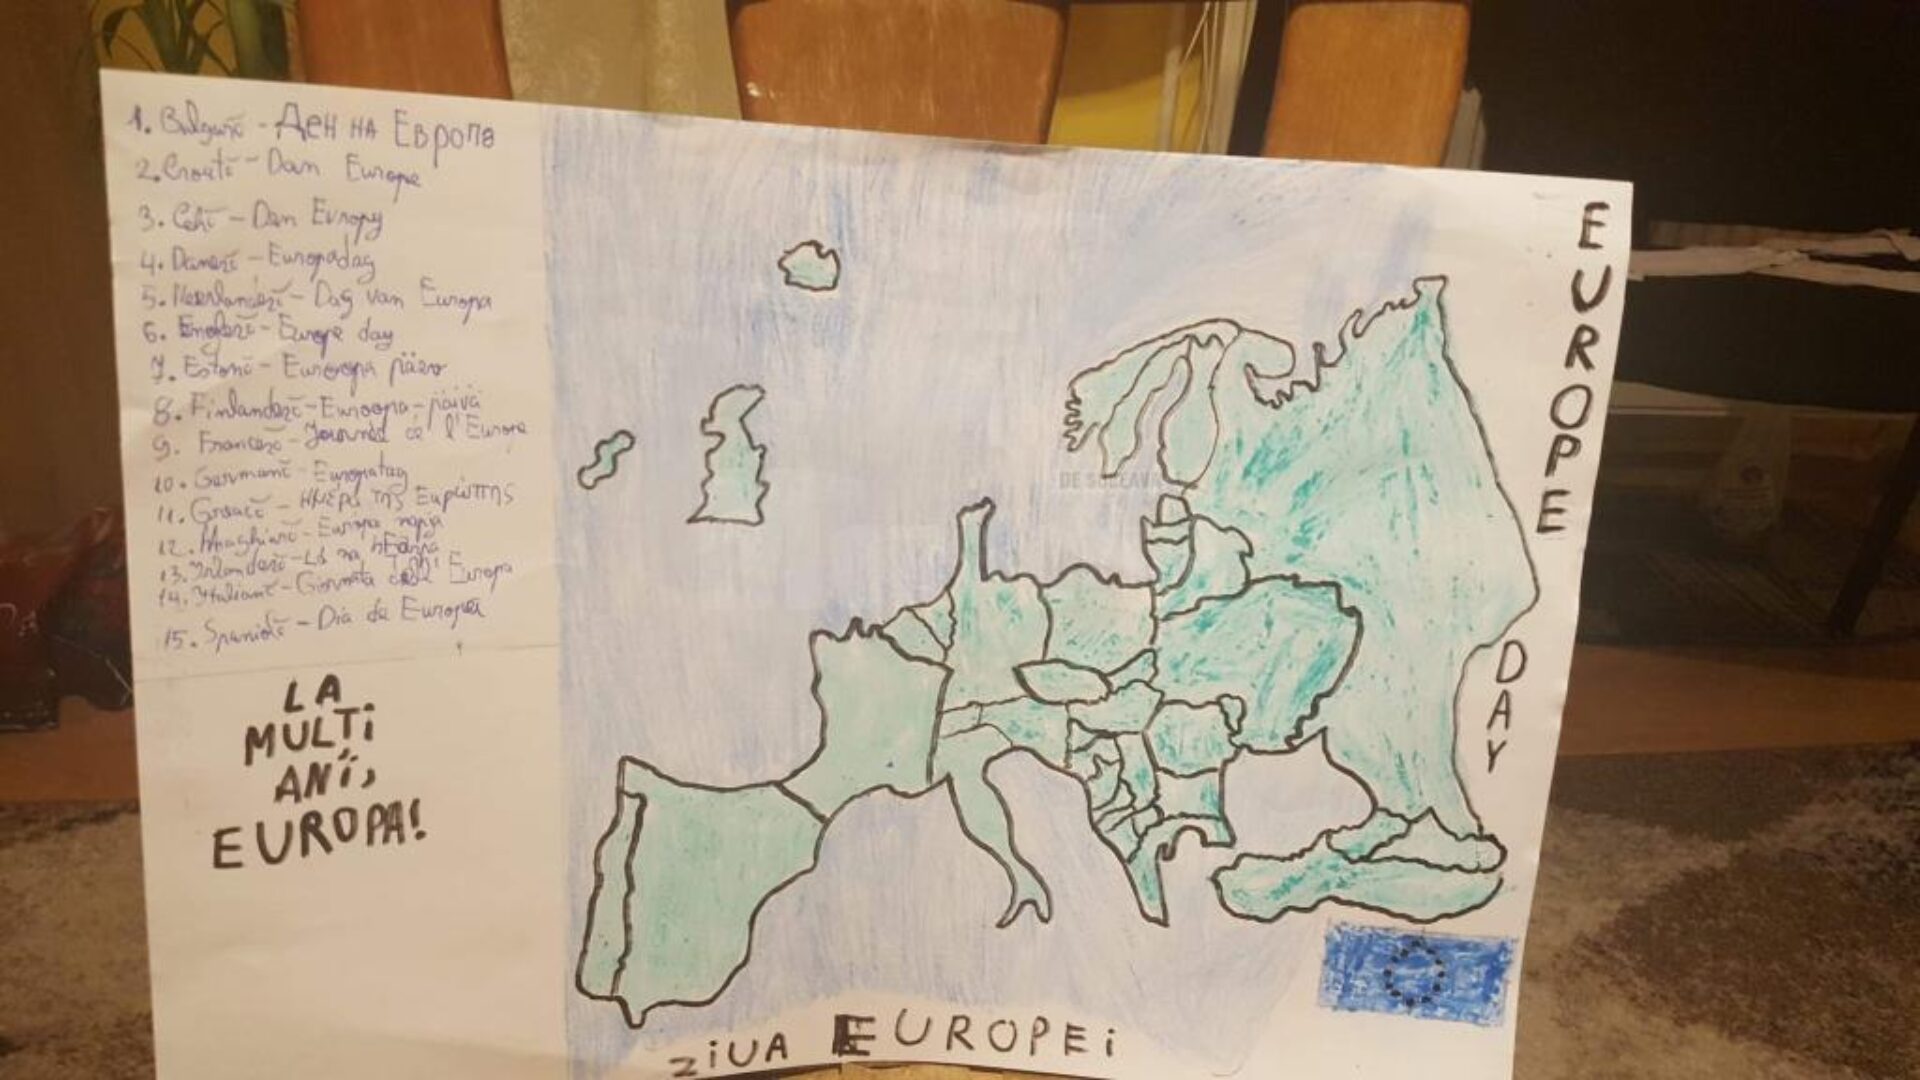 1. Bulgară - Ден на Европа
2. Croată - Dan Europe
3. Cehă - Den Evropy
4. Daneză - Europadag
5. Neerlandeză - Dag van Europa
6. Engleză - Europe day
7. Estonă - Euroopa päev
8. Finlandeză - Euroopa-päivä
9. Franceză - Journée de l'Europe
10. Germană - Europatag
11. Greacă - Ημέρα της Ευρώπης
12. Maghiară - Europa napja
13. Irlandeză - Lá na hEorpa
14. Italiană - Giornata dell' Europa
15. Spaniolă - Día de Europa
LA
MULTi
ANi,
EUROPA!
EUROPE
DAY
DE SUCEAVA
ZiUA EUROPEi